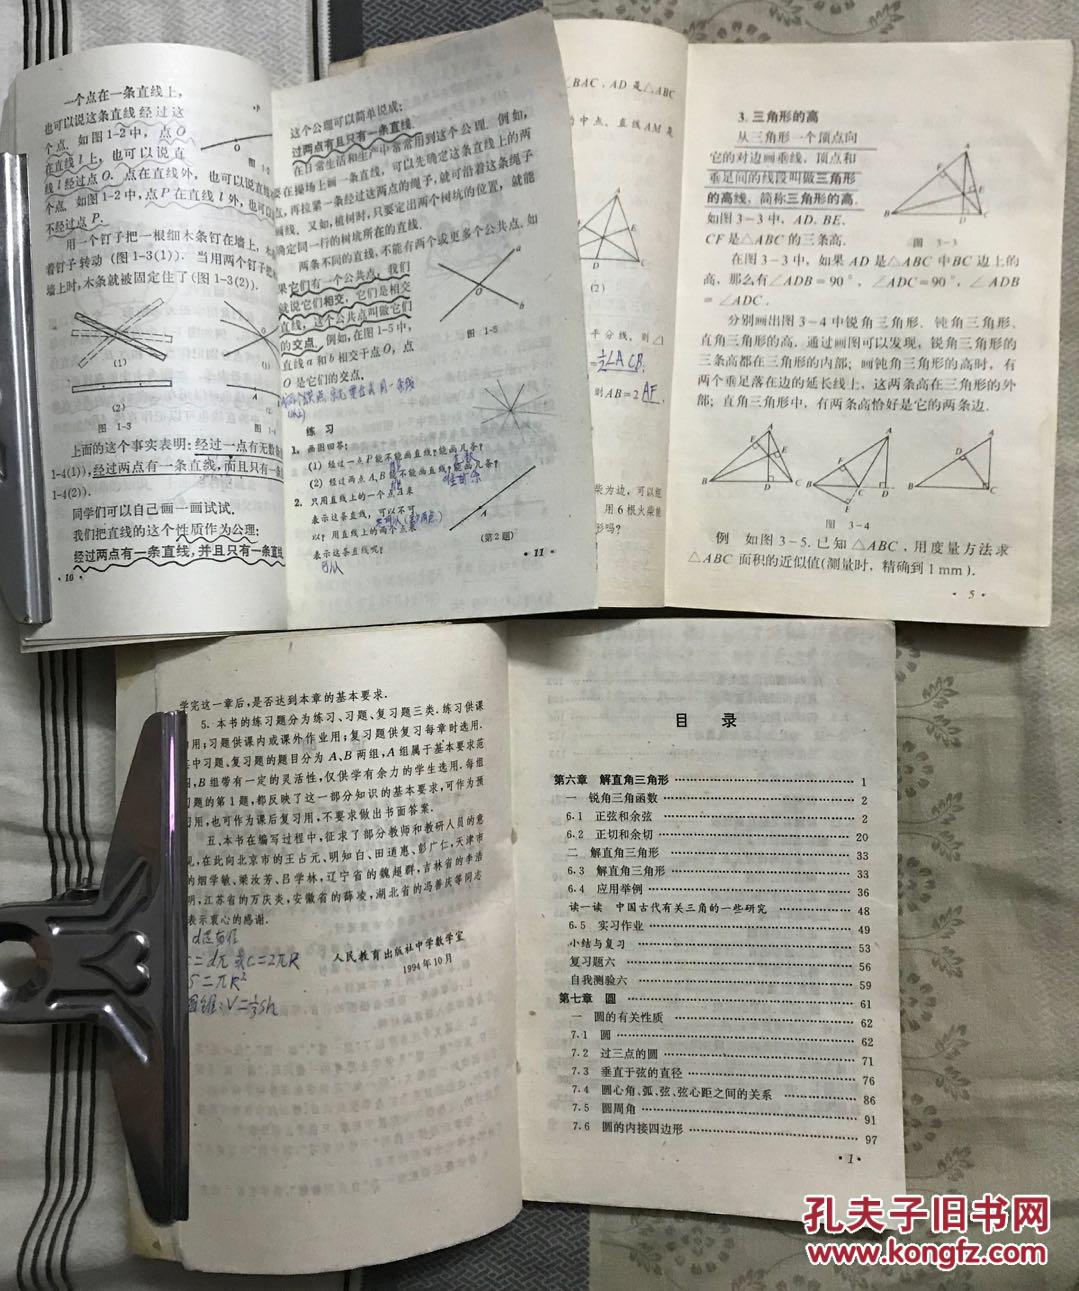 一个点在一条直线上,
也可以说这条直线经过这
个点. 如图1-2中, 点O
在直线l上, 也可以说直
线l经过点O. 点在直线外, 也可以说直线
个点. 如图1-2中, 点P在直线l外, 也可
不经过点P.
用一个钉子把一根细木条钉在墙上, 木
着钉子转动(图1-3(1)). 当用两个钉子把
墙上时, 木条就被固定住了(图1-3(2)).
(1)
(2)
图 1-3
上面的这个事实表明: 经过一点有无数
1-4(1)), 经过两点有一条直线, 而且只有一条
1-4(2)).
同学们可以自己画一画试试.
我们把直线的这个性质作为公理:
经过两点有一条直线, 并且只有一条直线
· 10 ·
这个公理可以简单说成:
过两点有且只有一条直线.
在日常生活和生产中常常用到这个公理. 例如,
要在操场上画一条直线, 可以先确定这条直线上的两
点, 再拉紧一条经过这两点的绳子, 就可沿着这条绳子
画线. 又如, 植树时, 只要定出两个树坑的位置, 就能
确定同一行的树坑所在的直线.
两条不同的直线, 不能有两个或更多个公共点. 如
果它们有一个公共点, 我们
就说它们相交, 它们是相交
直线, 这个公共点叫做它们
的交点. 例如, 在图1-5中,
直线a和b相交于点O, 点
O是它们的交点.
图 1-5
练 习
1. 画图回答:
(1) 经过一点P能不能画直线? 能画几条?
(2) 经过两点A, B能不能画直线? 能画几条?
2. 只用直线上的一个点A来
表示这条直线, 可以不可
以? 用直线上的两个点来
表示这条直线呢?
可以
(第2题)
· 11 ·
∠BAC, AD是△ABC
的中点, 直线AM是
(2)
平分线, 则∠
½∠ACB.
则AB=2 AF.
柴为边, 可以组
用6根火柴能
形吗?
3. 三角形的高
从三角形一个顶点向
它的对边画垂线, 顶点和
垂足间的线段叫做三角形
的高线, 简称三角形的高.
如图3-3中, AD, BE,
CF是△ABC的三条高.
图 3-3
在图3-3中, 如果AD是△ABC中BC边上的
高, 那么有∠ADB=90°, ∠ADC=90°, ∠ADB
=∠ADC.
分别画出图3-4中锐角三角形、钝角三角形、
直角三角形的高. 通过画图可以发现, 锐角三角形的
三条高都在三角形的内部; 画钝角三角形的高时, 有
两个垂足落在边的延长线上, 这两条高在三角形的外
部; 直角三角形中, 有两条高恰好是它的两条边.
图 3-4
例 如图3-5. 已知△ABC, 用度量方法求
△ABC面积的近似值(测量时, 精确到1 mm).
· 5 ·
学完这一章后, 是否达到本章的基本要求.
5. 本书的练习题分为练习、习题、复习题三类. 练习供课
用; 习题供课内或课外作业用; 复习题供复习每章时选用.
中习题、复习题的题目分为A、B两组, A组属于基本要求范
围, B组带有一定的灵活性, 仅供学有余力的学生选用. 每组
题的第1题, 都反映了这一部分知识的基本要求, 可作为预
习用, 也可作为课后复习用, 不要求做出书面答案.
五、本书在编写过程中, 征求了部分教师和教研人员的意
见, 在此向北京市的王占元、明知白、田通惠、彭广仁, 天津市
的烟学敏、梁汝芳、吕学林, 辽宁省的魏超群, 吉林省的李浩
明, 江苏省的万庆炎, 安徽省的薛凌, 湖北省的冯善庆等同志
表示衷心的感谢.
d是直径
C=dπ 或C=2πR
S=πR²
圆锥: V=⅓Sh
人民教育出版社中学数学室
1994年10月
目 录
第六章 解直角三角形 1
一 锐角三角函数 2
6.1 正弦和余弦 2
6.2 正切和余切 20
二 解直角三角形 33
6.3 解直角三角形 33
6.4 应用举例 36
读一读 中国古代有关三角的一些研究 48
6.5 实习作业 49
小结与复习 53
复习题六 56
自我测验六 59
第七章 圆 61
一 圆的有关性质 62
7.1 圆 62
7.2 过三点的圆 71
7.3 垂直于弦的直径 76
7.4 圆心角、弧、弦、弦心距之间的关系 86
7.5 圆周角 91
7.6 圆的内接四边形 97
· 1 ·
孔夫子旧书网
www.kongfz.com